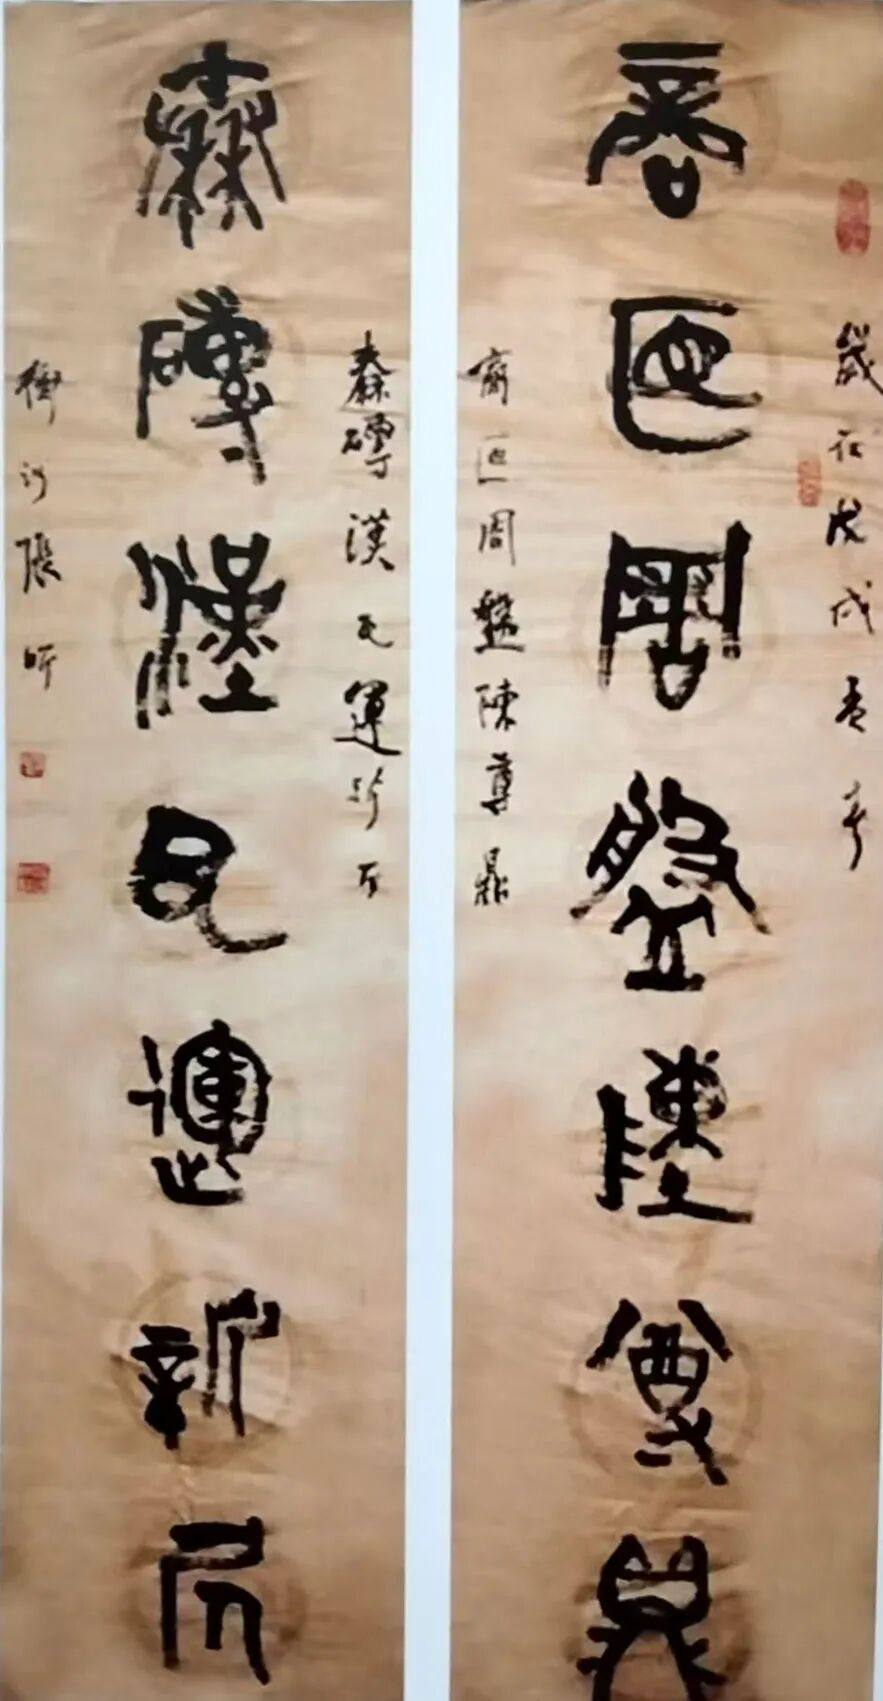 歲在戊戌孟
商匜周盤陳尊鼎
商匜周盤陳尊鼎
秦磚漢瓦運新
秦磚漢瓦運新
張昕